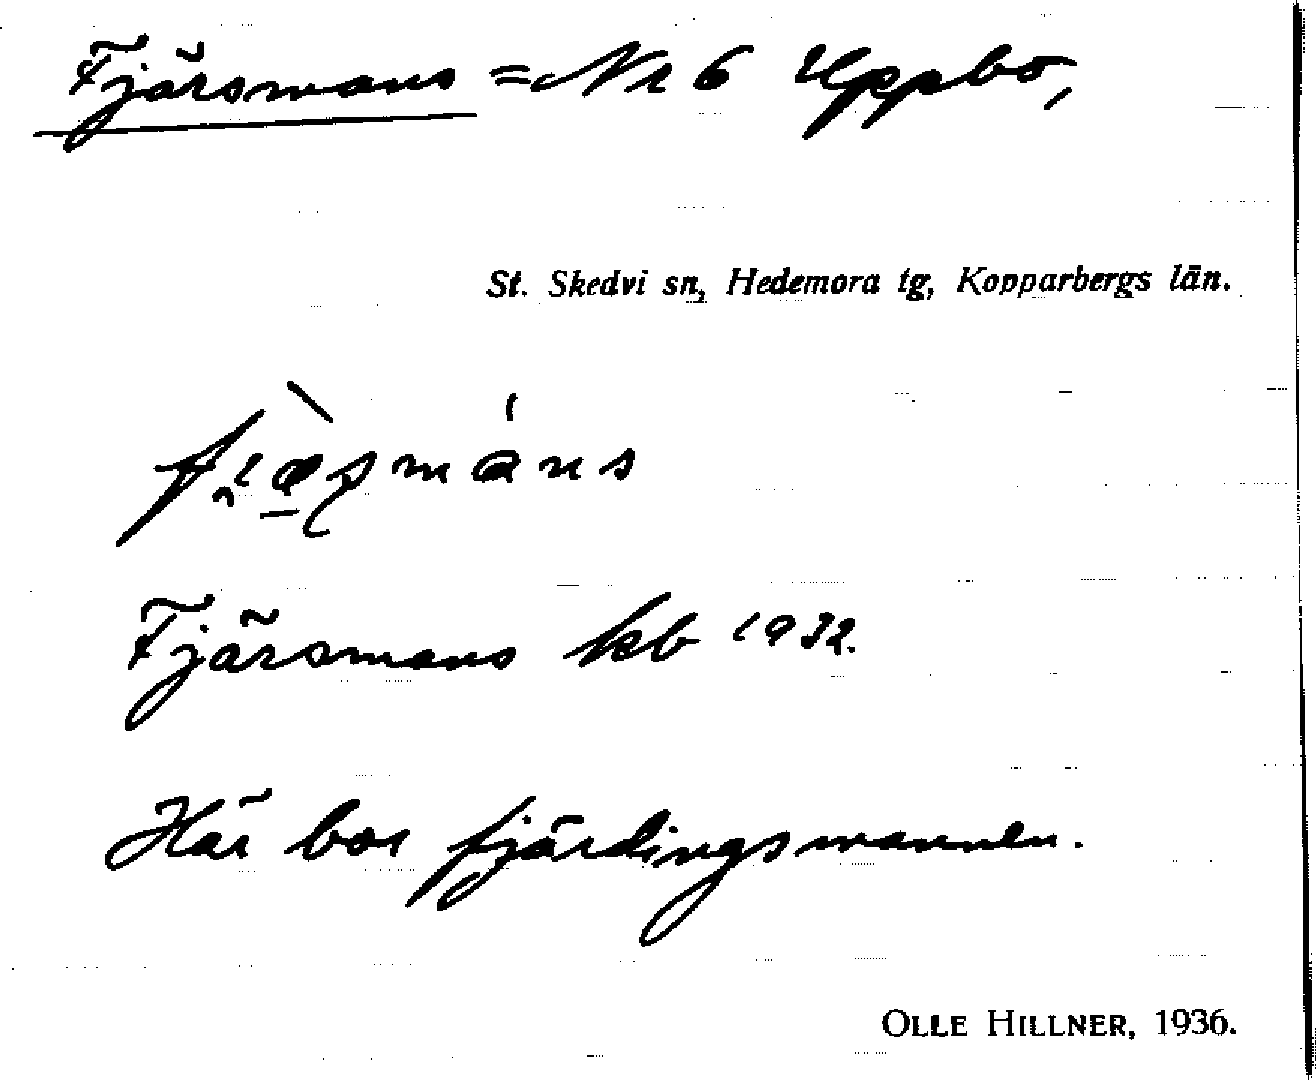 Fjärsmans = Nr 6 Uppbo,
St. Skedvi sn, Hedemora tg, Kopparbergs län.
Fjärsmans kb 1932.
Här bor fjärdingsmannen.
OLLE HILLNER, 1936.